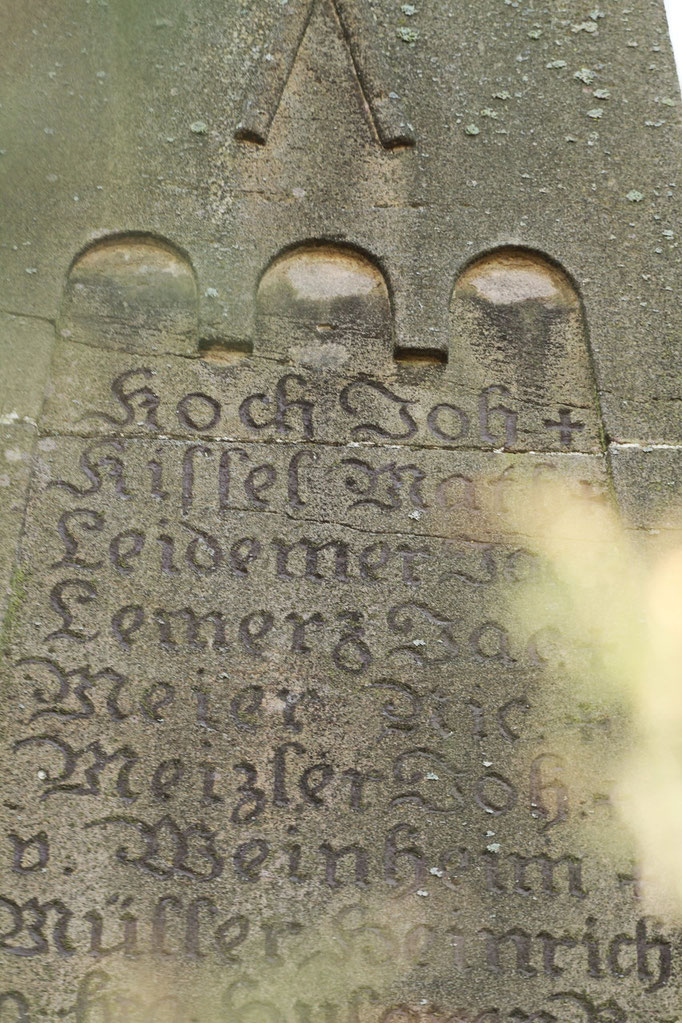 Koch Joh +
Kissel Math
Leidemer
Lemerz Jac.
Meier Nic
Meizler Joh.
v. Weinheim
Müller Heinrich